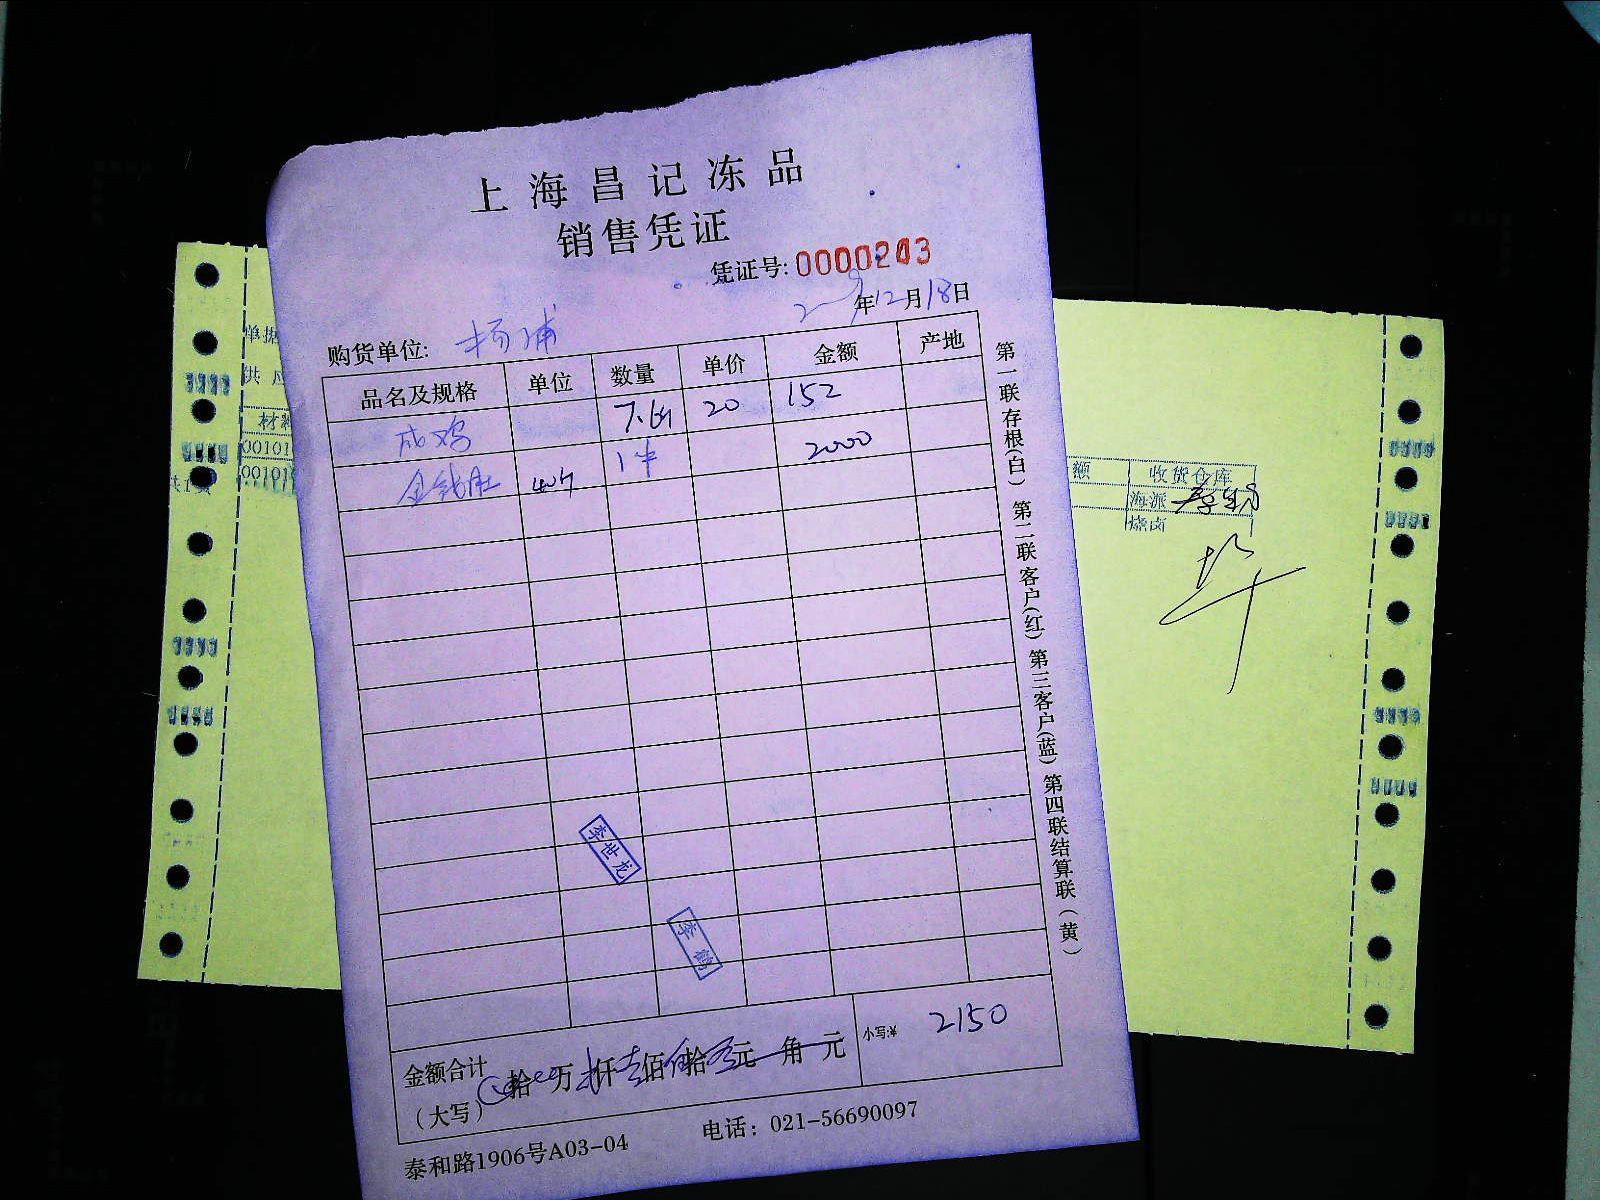 上海昌记冻品
销售凭证
凭证号: 0000203
年12月18日
购货单位: 杨浦
品名及规格 单位 数量 单价 金额 产地
咸鸡 7.6斤 20 152
金钱肚 1件 2000
李世龙
李鹤
金额合计
(大写) 拾 万 仟 佰 拾 元 角 元 小写:¥ 2150
泰和路1906号A03-04 电话: 021-56690097
第一联存根(白) 第二联客户(红) 第三客户(蓝) 第四联结算联(黄)
单据
供应
材料
00101
00101
共1页
额 收货仓库
海派
烧卤